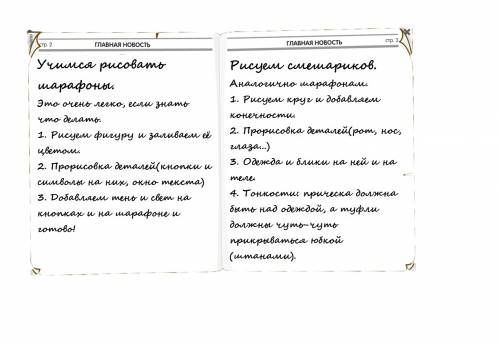 стр. 2
ГЛАВНАЯ НОВОСТЬ
Учимся рисовать
шарафоны.
Это очень легко, если знать
что делать.
1. Рисуем фигуру и заливаем её
цветом.
2. Прорисовка деталей(кнопки и
символы на них, окно текста)
3. Добавляем тень и свет на
кнопках и на шарафоне и
готово!
ГЛАВНАЯ НОВОСТЬ
стр. 3
Рисуем смешариков.
Аналогично шарафонам.
1. Рисуем круг и добавляем
конечности.
2. Прорисовка деталей(рот, нос,
глаза...)
3. Одежда и блики на ней и на
теле.
4. Тонкости: прическа должна
быть над одеждой, а туфли
должны чуть-чуть
прикрываться юбкой
(штанами).